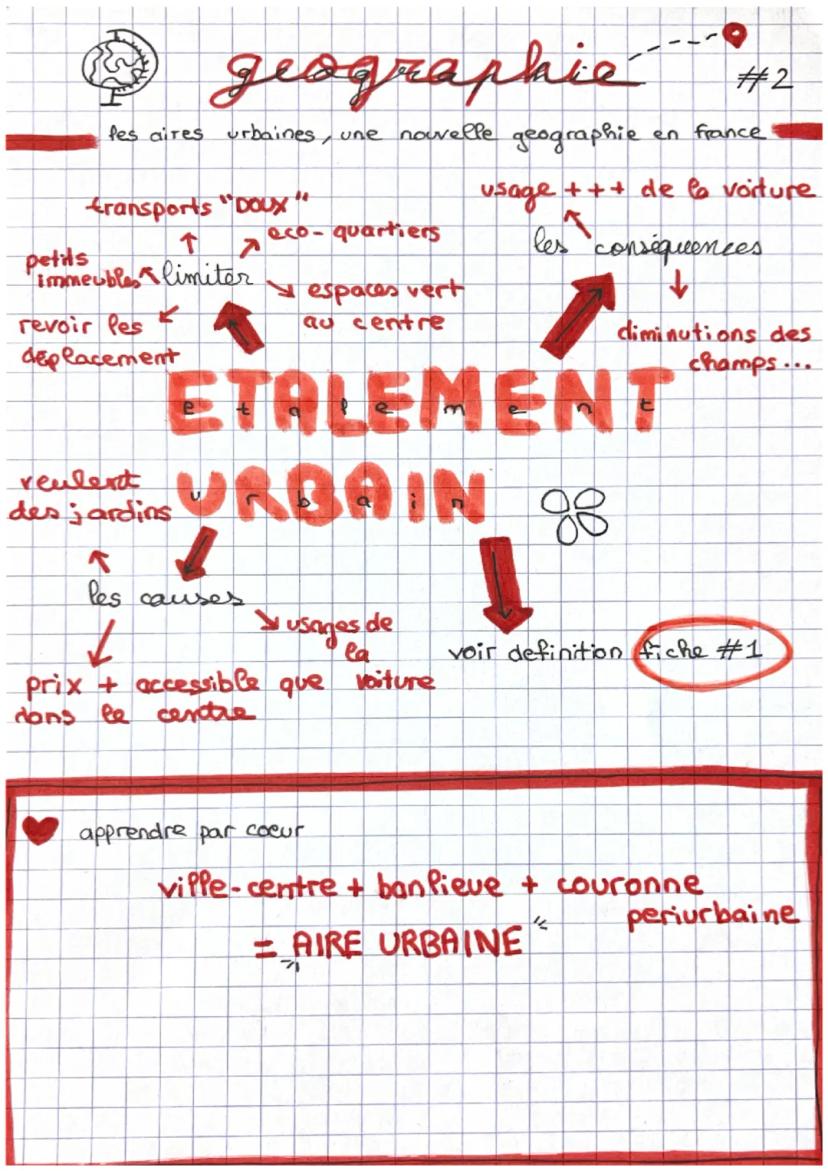 geographie
#2
les aires urbaines, une nouvelle geographie en france
transports "DOUX"
eco-quartiers
petits
immeubles
limiter
espaces vert
au centre
revoir les
déplacement
usage +++ de la voiture
les conséquences
diminutions des
champs...
ETALEMENT
e t a l e m e n t
URBAIN
u r b a i n
veulent
des jardins
les causes
usages de
la
voiture
prix + accessible que
dans le centre
voir definition fiche #1
apprendre par coeur
ville-centre + banlieue + couronne
periurbaine
= "AIRE URBAINE"